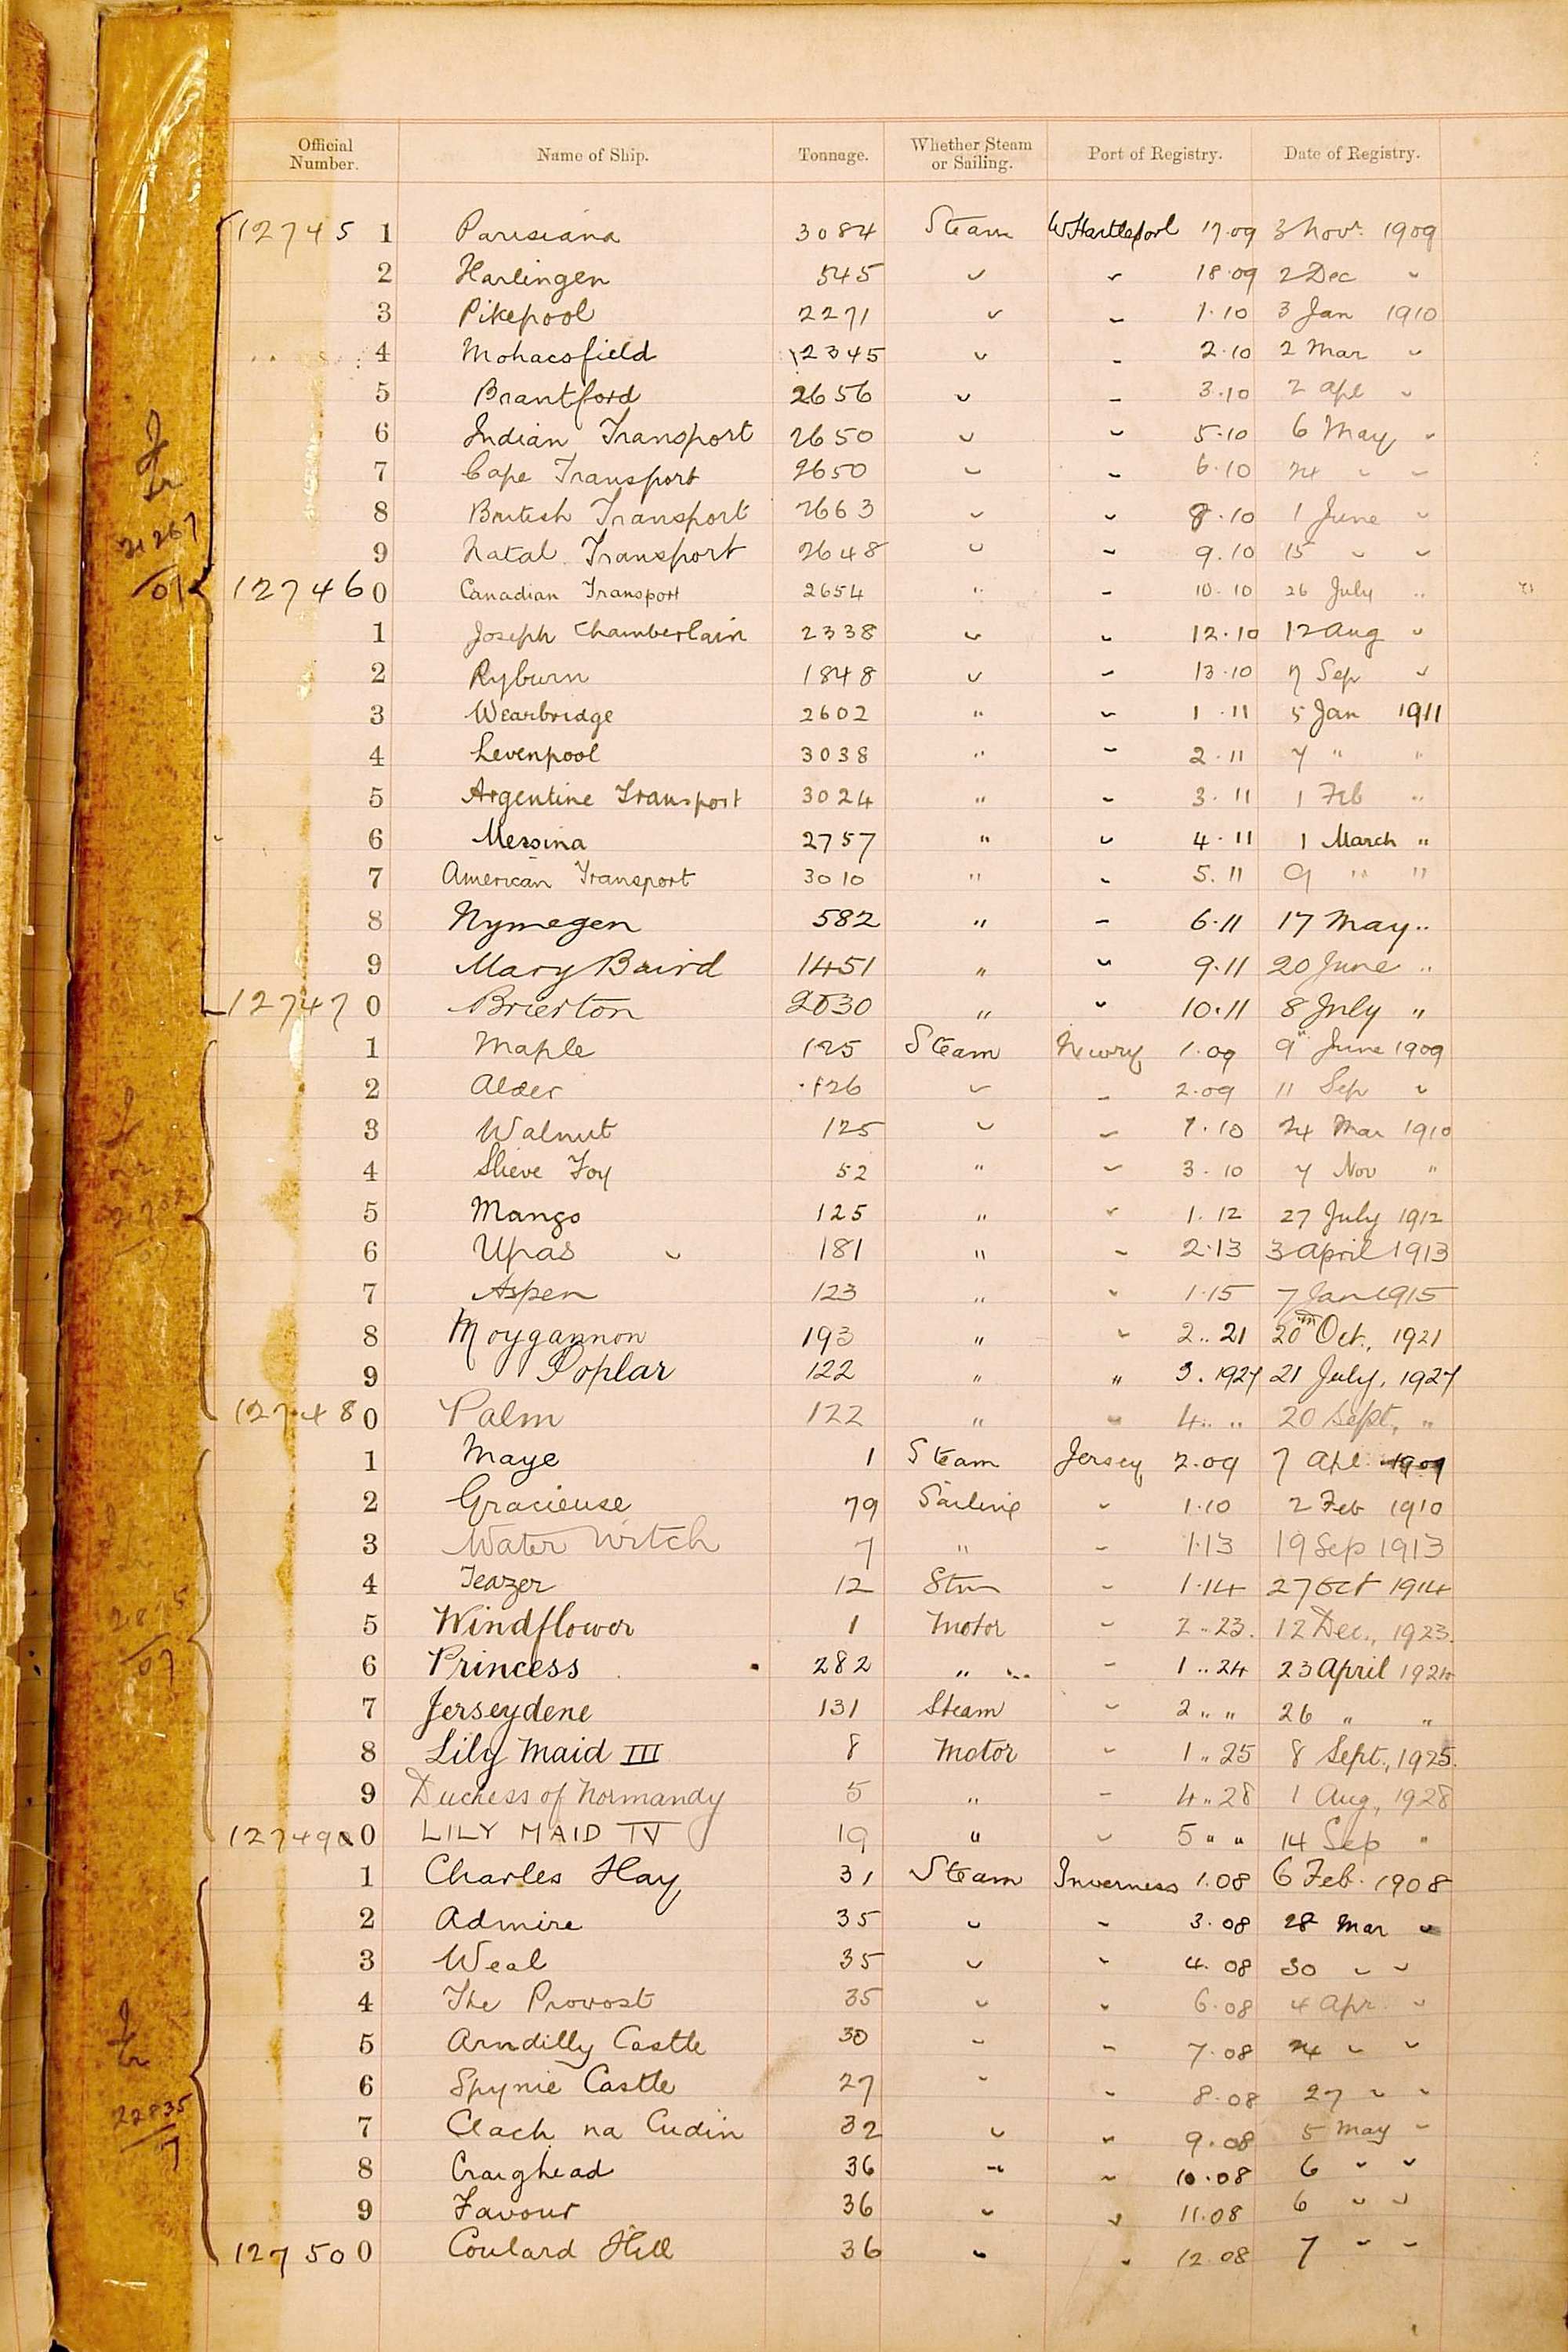 Official Number. Name of Ship. Tonnage. Whether Steam or Sailing. Port of Registry. Date of Registry.
12745 1 Parisiana 3084 Steam W Hartlepool 17.09 3 Novr. 1909
2 Harlingen 545 " " 18.09 2 Dec "
3 Pikepool 2271 " " 1.10 3 Jan 1910
4 Mohacsfield 2345 " " 2.10 2 Mar "
5 Brantford 2656 " " 3.10 2 Apl "
6 Indian Transport 2650 " " 5.10 6 May "
7 Cape Transport 2650 " " 6.10 24 " "
8 British Transport 2663 " " 8.10 1 June "
9 Natal Transport 2648 " " 9.10 15 " "
21267
/01
12746 0 Canadian Transport 2654 " " 10.10 26 July "
1 Joseph Chamberlain 2338 " " 12.10 12 Aug "
2 Ryburn 1848 " " 13.10 7 Sep "
3 Wearbridge 2602 " " 1.11 5 Jan 1911
4 Levenpool 3038 " " 2.11 7 " "
5 Argentine Transport 3024 " " 3.11 1 Feb "
6 Messina 2757 " " 4.11 1 March "
7 American Transport 3010 " " 5.11 9 " "
8 Nymegen 582 " " 6.11 17 May "
9 Mary Baird 1451 " " 9.11 20 June "
12747 0 Brierton 2030 " " 10.11 8 July "
1 Maple 125 Steam Newry 1.09 9" June 1909
2 Alder 126 " " 2.09 11 Sep "
3 Walnut 125 " " 1.10 24 Mar 1910
4 Slieve Foy 52 " " 3.10 7 Nov "
5 Mango 125 " " 1.12 27 July 1912
6 Upas 181 " " 2.13 3 April 1913
7 Aspen 123 " " 1.15 7 Jan 1915
8 Moygannon 193 " " 2..21 20th Oct., 1921
9 Poplar 122 " " 3.1927 21 July, 1927
12748 0 Palm 122 " " 4.. " 20 Sept, "
1 Maye 1 Steam Jersey 2.09 7 Apl 1909
2 Gracieuse 79 Sailing " 1.10 2 Feb 1910
3 Water Witch 7 " " 1.13 19 Sep 1913
4 Teazer 12 Stm " 1.14 27 Oct 1914
5 Windflower 1 Motor " 2..23. 12 Dec., 1923.
6 Princess 282 " " 1..24 23 April 1924
/07
7 Jerseydene 131 Steam " 2 " " 26 " "
8 Lily Maid III 8 Motor " 1..25 8 Sept., 1925.
9 Duchess of Normandy 5 " " 4..28 1 Aug, 1928
12749 0 LILY MAID IV 19 " " 5 " " 14 Sep "
1 Charles Hay 31 Steam Inverness 1.08 6 Feb. 1908
2 Admire 35 " " 3.08 28 Mar "
3 Weal 35 " " 4.08 30 " "
4 The Provost 35 " " 6.08 4 Apr "
5 Arndilly Castle 30 " " 7.08 24 " "
6 Spynie Castle 27 " " 8.08 27 " "
22835
/7
7 Clach na Cudin 32 " " 9.08 5 May "
8 Craighead 36 " " 10.08 6 " "
9 Favour 36 " " 11.08 6 " "
12750 0 Coulard Hill 36 " " 12.08 7 " "